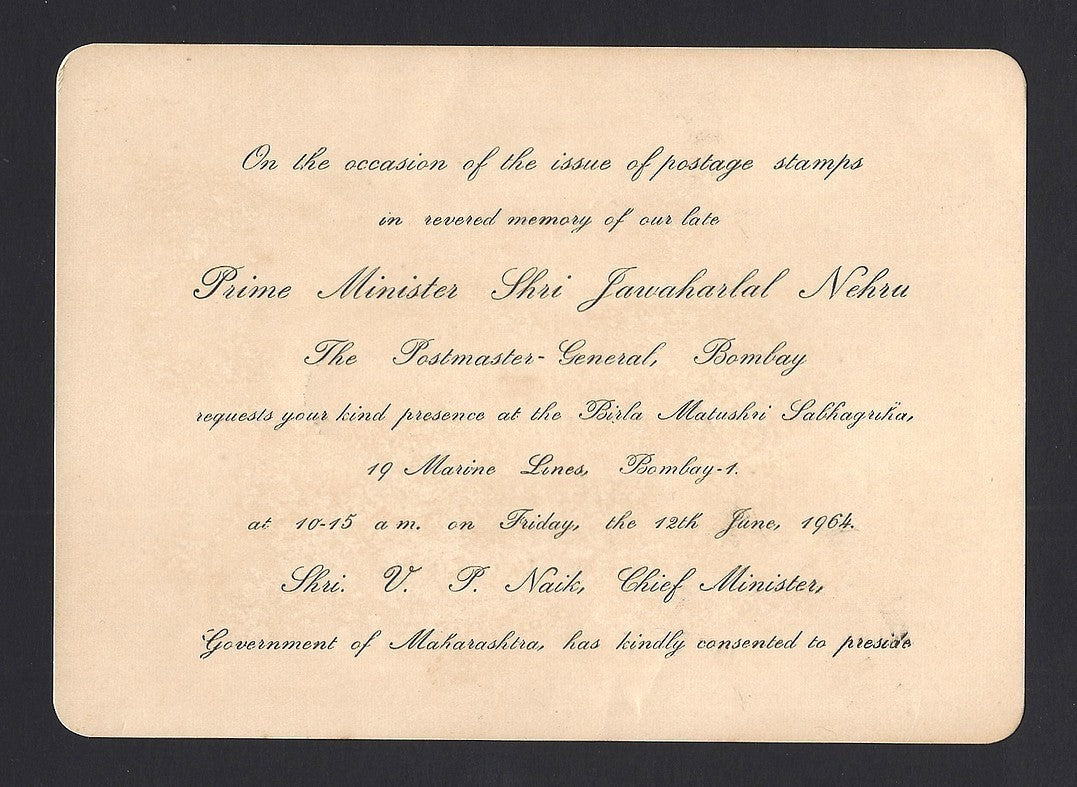 On the occasion of the issue of postage stamps
in revered memory of our late
Prime Minister Shri Jawaharlal Nehru
The Postmaster-General, Bombay
requests your kind presence at the Birla Matushri Sabhagriha,
19 Marine Lines, Bombay-1.
at 10-15 a m. on Friday, the 12th June, 1964.
Shri. V. P. Naik, Chief Minister,
Government of Maharashtra, has kindly consented to preside